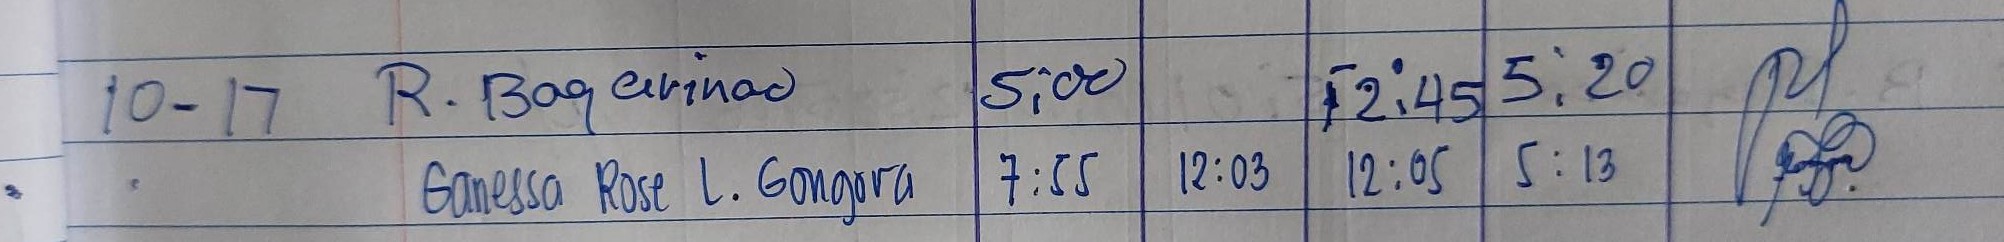 10-17 R. Baqcirinao 5:00 12:45 5:20
Ganessa Rose L. Gongora 7:55 12:03 12:05 5:13